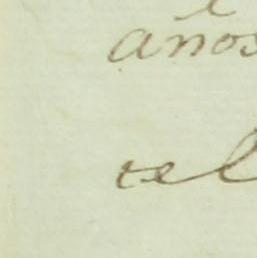 años
tel